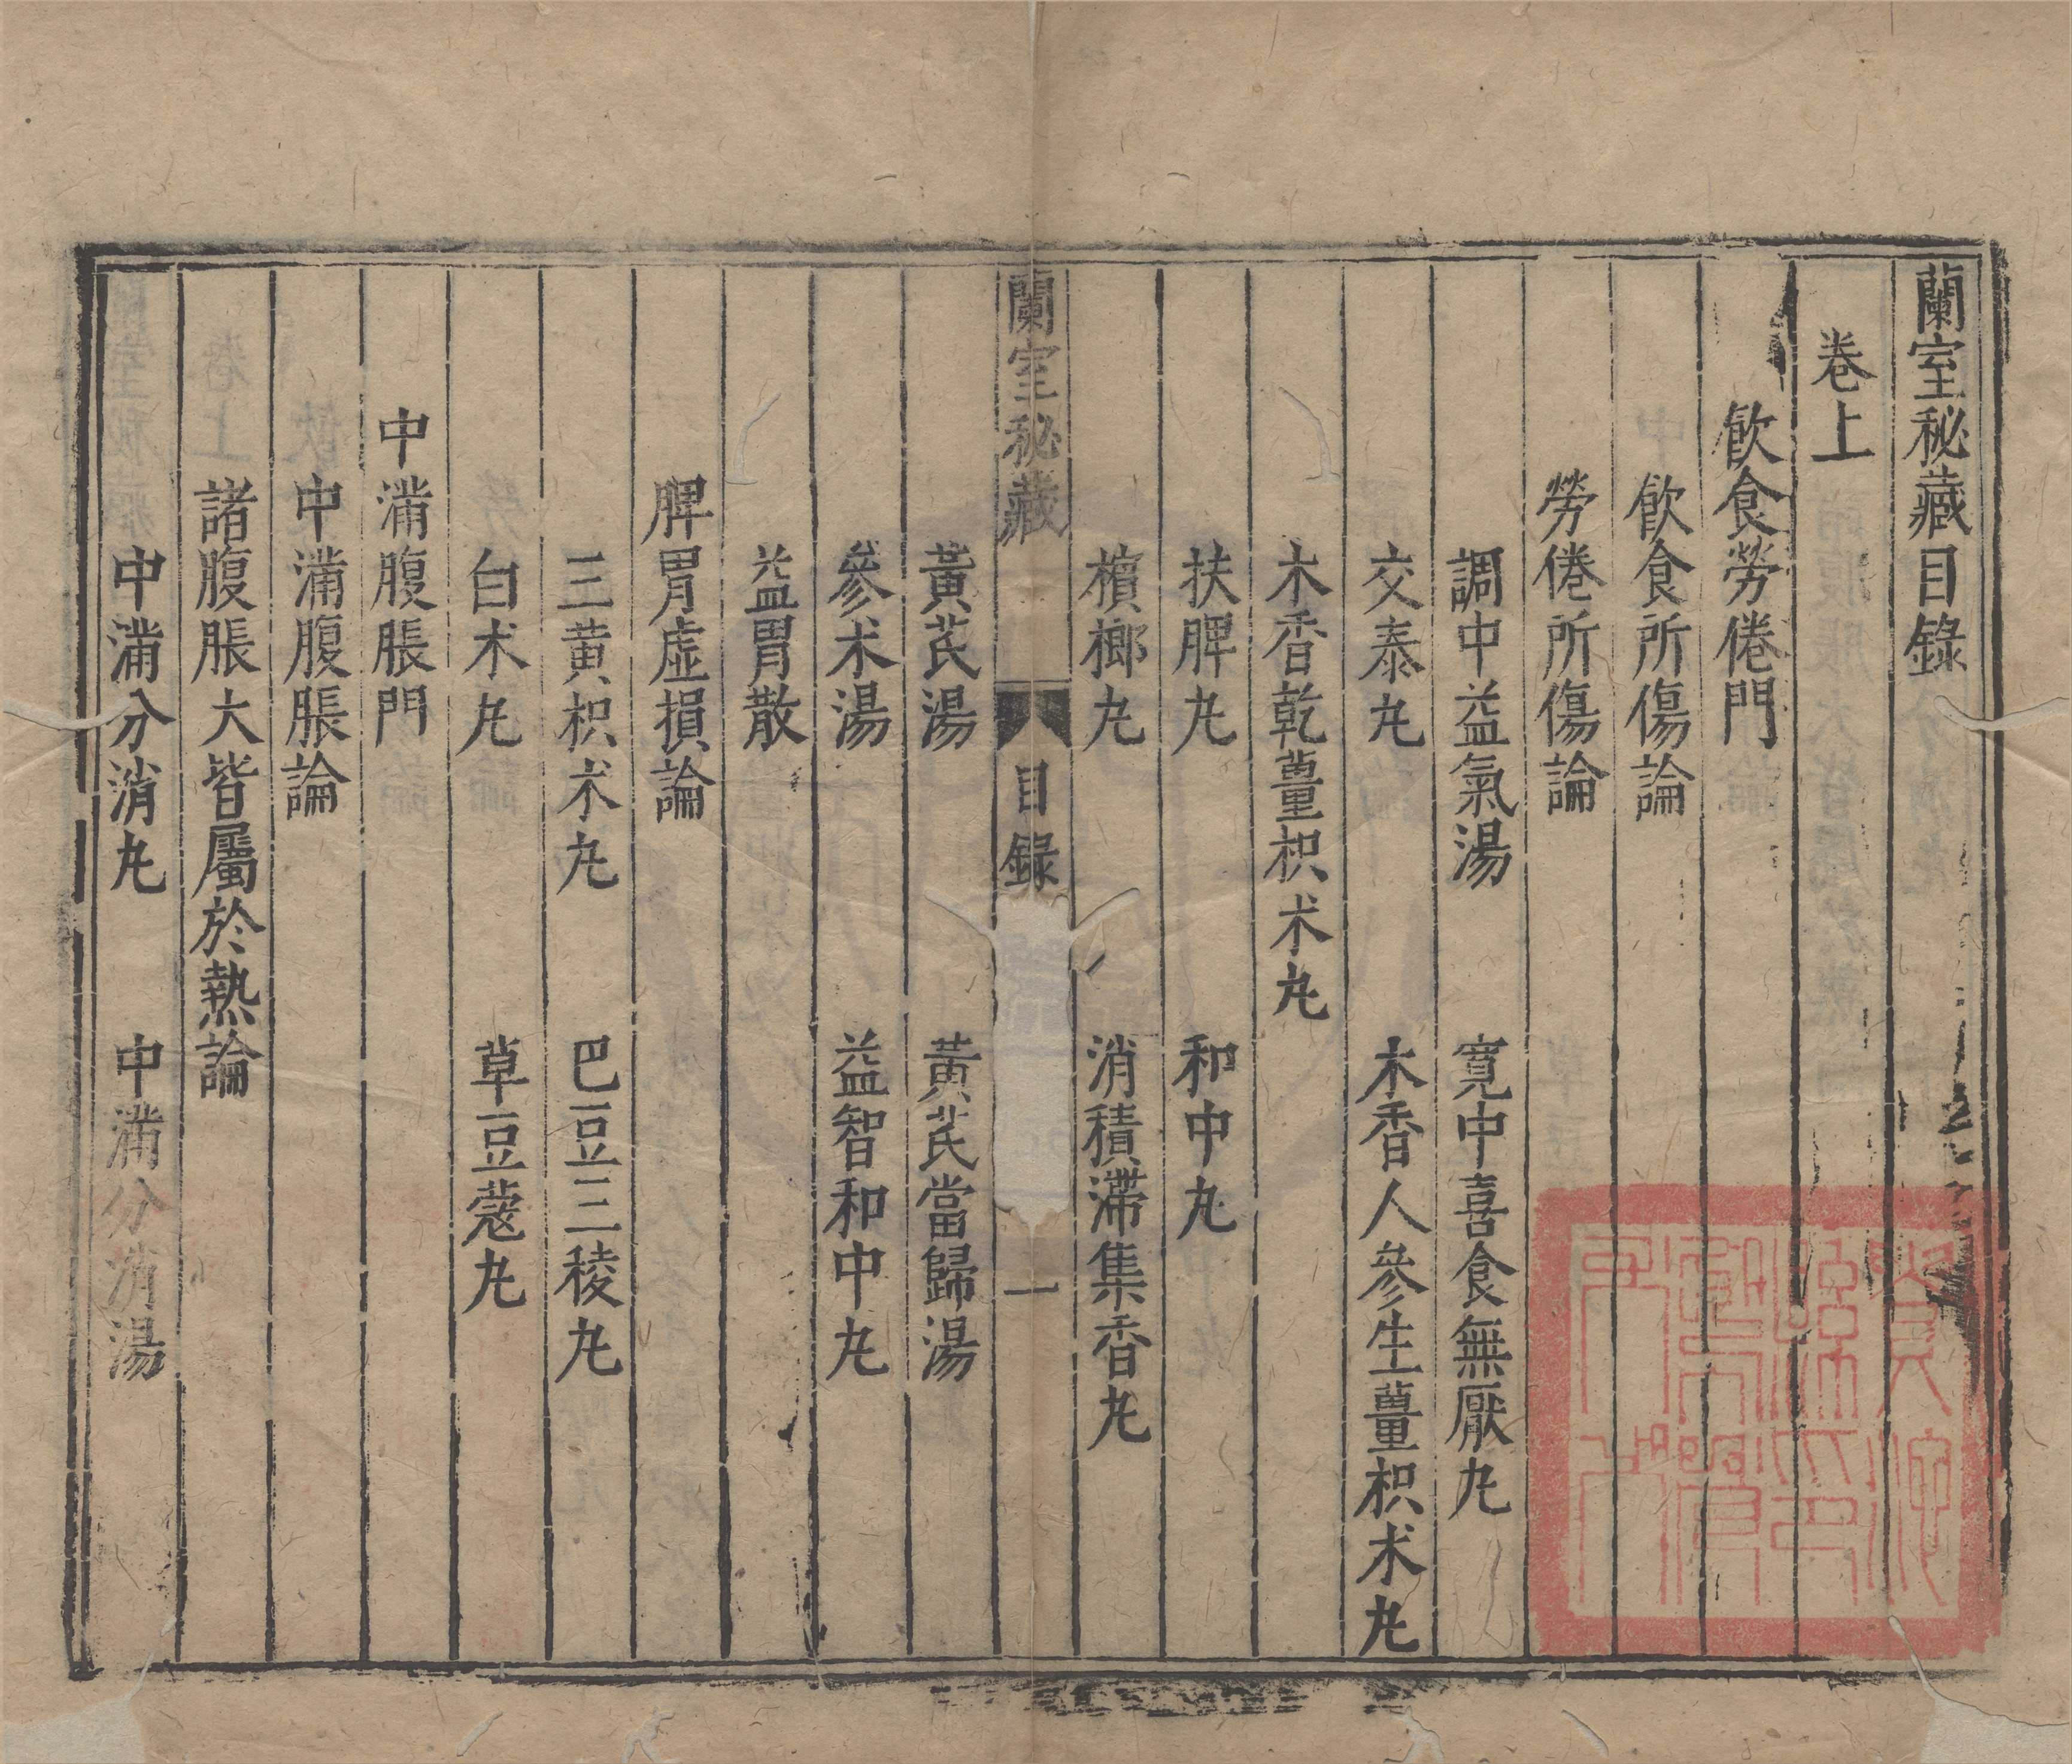 蘭室秘藏目錄
卷上
飲食勞倦門
飲食所傷論
勞倦所傷論
調中益氣湯　寬中喜食無厭丸
交泰丸　木香人參生薑枳术丸
木香乾薑枳术丸
扶脾丸　和中丸
檳榔丸　消積滯集香丸
蘭室秘藏　目錄　一
黃芪湯　黃芪當歸湯
參术湯　益智和中丸
益胃散
脾胃虛損論
三黃枳术丸　巴豆三稜丸
白术丸　草豆蔻丸
中滿腹脹門
中滿腹脹論
諸腹脹大皆屬於熱論
中滿分消丸　中滿分消湯